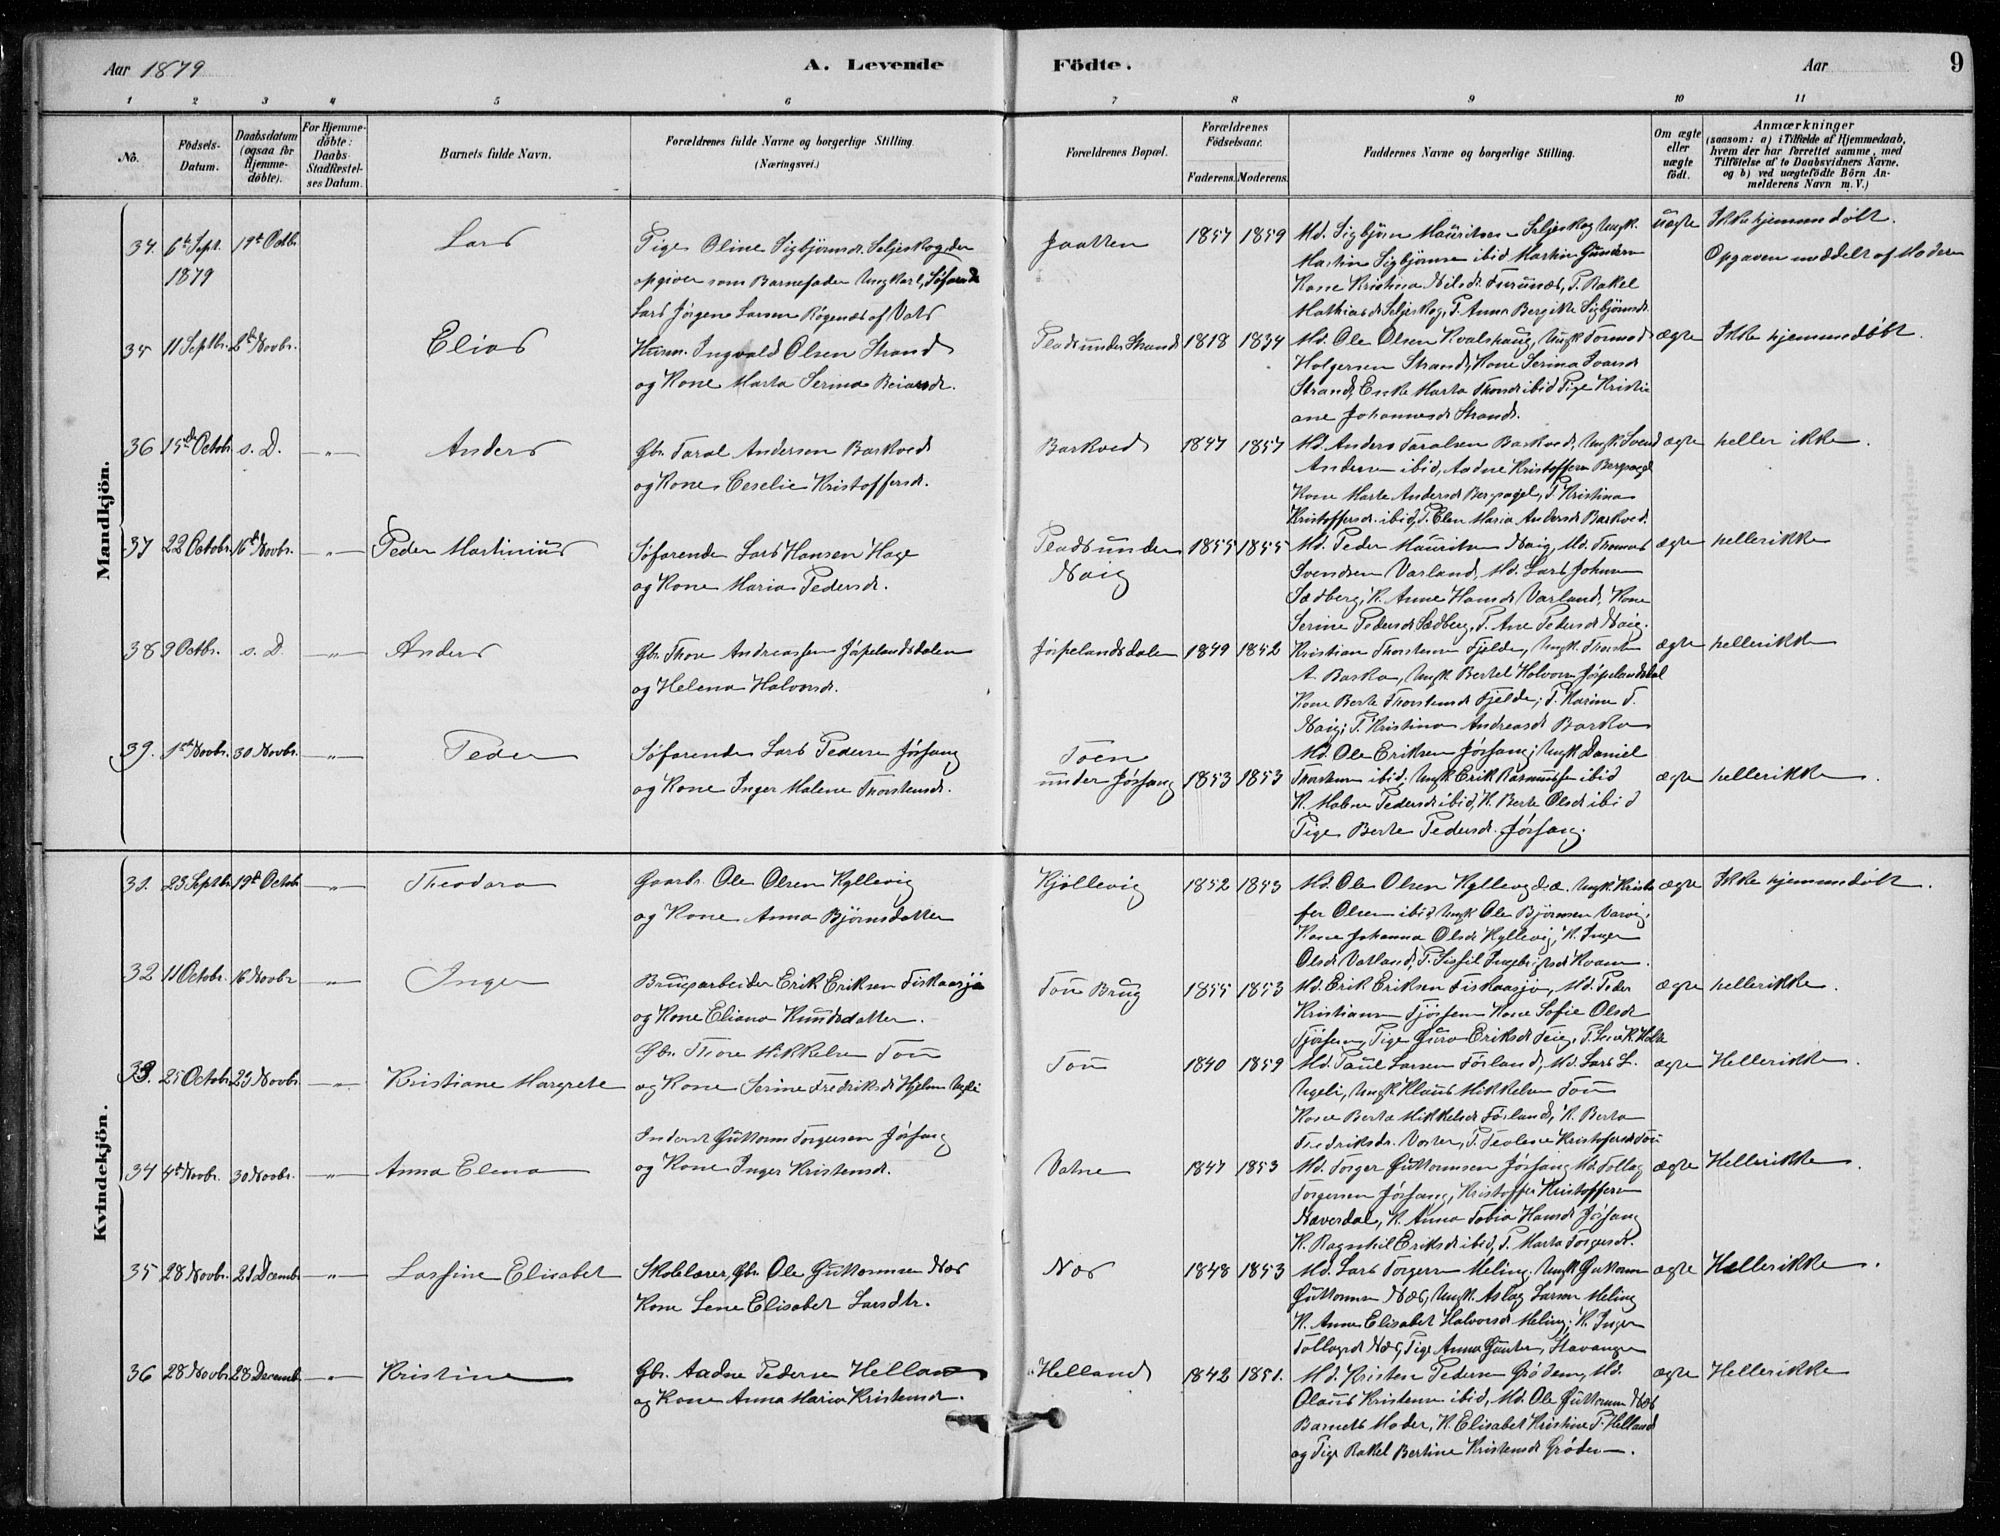 Aar 1879
A. Levende
Födte.
Aar
9
1 2 3 4 5 6 7 8 9 10 11
No.
Födsels-
Datum.
Daabsdatum
(ogsaa för
Hjemme-
döbte).
For Hjemme-
döbte:
Daabs-
Stadfæstel-
ses Datum.
Barnets fulde Navn.
Forældrenes fulde Navne og borgerlige Stilling.
(Næringsvei.)
Forældrenes Bopæl.
Forældrenes
Födselsaar.
Faderens. Moderens.
Faddernes Navne og borgerlige Stilling.
Om ægte
eller
uægte
födt.
Anmærkninger
(saasom: a) i Tilfælde af Hjemmedaab,
hvem der har forrettet samme, med
Tilföielse af to Daabsvidners Navne,
og b) ved uægtefödte Börn An-
melderens Navn m. V.)
Mandkjön.
34. 6te Sept. 1879
19de Octbr
Lars
Pige Oline Sigbjörnsdr. Seljeskog, der
opgiver som Barnefader Ungkarl, Söfarende
Lars Jörgen Larsen Rögenæs af Vats
Jaatten
1857 1859
Md. Sigbjörn Mauritsen Seljeskog Ungk.
Martin Sigbjörnsen ibid Martin Gundersen
Kone Kristina Nilsdr. Furunæs, P. Rakel
Mathiasdr Seljeskog, P. Anna Bergitte Sigbjörnsdr.
uægte
Ikke hjemmedøbt.
Opgaven meddelt af Moderen
35 11 Septbr. 2de Novbr.
Elias
Husm. Ingvald Olsen Strand
og Kone Marta Serina Beiarsdr.
Plads under Strand
1818 1834
Md. Ole Olsen Kvalshaug, Ungk Tormod
Holgersen Strand, Kone Serina Ivarsdr
Strand, Enke Marta Thorsdr ibid Pige Kristi
ane Johannesdr Strand.
ægte
Ikke hjemmedøbt.
36 15de Octobr s. D. -"-
Anders
Gbr. Taral Andersen Barkved
og Kone Ceselie Kristoffersdr.
Barkved
1847 1857
Md. Anders Taralsen Barkved, Ungk Svend
Andersen ibid, Aadne Kristoffersen Bergsagel
Kone Marte Andersdr Bergsagel, P. Kristina
Kristoffersdr. ibid, P. Elen Maria Andersdr Barkved.
ægte
heller ikke.
37 22 Octobr. 16de Novbr. -"-
Peder Martinius
Söfarende Lars Hansen Hage
og Kone Maria Pedersdr.
Plads under
Naig
1855 1855
Md. Peder Mauritsen Naig, Md. Thomas
Svendsen Varland, Md. Lars Johnsen
Sædberg, K. Anne Hansdr Varland, Kone
Serine Pedersdr Sædberg, P. Ane Pedersdr Naig.
ægte
hellerikke
38 9 Octbr. s. D. -"-
Anders
Gbr. Thore Andreassen Jöspelandsdalen
og Helena Halvorsdr.
Jöspelandsdalen
1849 1852
Kristian Thorstensen Fjelde, Ungk. Thorsten
A. Barka, Ungk. Bertel Halvorsen Jöspelandsdal
Kone Berte Thorstensdr Fjelde; P. Karine T.
Naig; P. Kristina Andreasdr Barka
ægte
hellerikke
39. 1ste Novbr. 30 Novbr. -"-
Peder
Söfarende Lars Pedersen Jörsang
og Kone Inger Malene Thorstensdr.
Toen
under Jörsang
1853 1853
Md. Ole Eriksen Jörsang; Ungk Daniel
Thorstensen ibid; Ungk. Erik Rasmussen ibid
K. Malene Pedersdr ibid, K. Berte Olsdr ibid
Pige Berte Pedersdr. Jörsang.
ægte
hellerikke.
Kvindekjön.
31. 23 Septbr 19de Octobr -"-
Theodora
Gaarbr. Ole Olsen Kyllevig
og Kone Anna Björnsdatter
Kjöllevig
1852 1853
Md. Ole Olsen Kyllevig d.æ. Ungk Kristo
fer Olsen ibid, Ungk Ole Björnsen Varvig.
Kone Johanna Olsdr Kyllevig, K. Inger
Olsdr Vatland, P. Sissil Ingebrigtsdr Kvam.
ægte
Ikke hjemmedøbt.
32 11 Octobr. 16 Novbr -"-
Inger
Brugsarbeider Erik Eriksen Fiskaasjö
og Kone Eliana Knudsdatter.
Tou Brug
1855 1853
Md. Erik Eriksen Fiskaasjö, Md. Peder
Kristiansen Tjössem Kone Sofie Olsdr
Tjössem, Pige Guro Eriksdr Teig, P. Lene K Holte
ægte
hellerikke.
33. 25 Octobr 23 Novbr -"-
Kristiane Margrete
Gbr. Thore Mikkelsen Tou
og Kone Serine Fredriksdr Hjelm Ugli
Tou
1840 1859
Md. Paul Larsen Förland, Md. Lars L.
Ugeli, Ungk Klaus Mikkelsen Tou
Kone Berta Mikkelsdr Förland, K. Berta
Fredriksdr. Voster, P. Teoline Kristofersdr Tou
ægte
Hellerikke.
34 4de Novbr. 30 Novbr. -"-
Anna Elena
Inderst Guttorm Torgersen Jörsang
og Kone Inger Kristensdr.
Vatne
1847 1853
Md. Torger Guttormsen Jörsang Md. Tollag
Torgersen Jörsang, Kristoffer Kristoffersen
Næverdal, K. Anna Tobia Hansdr Jörsang
K. Ragnhil Eriksdr ibid, P. Marta Torgersdr.
ægte
Hellerikke.
35 28 Novbr. 21 Decembr -"-
Lassine Elisabet
Skolelærer, Gbr. Ole Guttormsen Næs
Kone Lene Elisabet Larsdtr.
Næs
1848 1853
Md. Lars Torgersen Meling; Ungk Guttorm
Guttormsen Næs, Ungk. Aslag Larsen Meling
K. Anne Elisabet Halvorsdr Meling; K. Inger
Tollagsdr Næs, Pige Anna Gunter, Stavanger
ægte
Hellerikke.
36 28 Novbr 28 Decemb. -"-
Kristine
Gbr. Aadne Pedersen Helland
og Kone Anna Maria Kristensdr.
Helland
1842 1851.
Md. Kristen Pedersen Grödem, Md.
Olaus Kristensen ibid, Md. Ole Guttormsen Næs
Barnets Moder, K. Elisabet Kristine P. Helland
og Pige Rakel Bertine Kristensdr Gröden.
ægte
Hellerikke